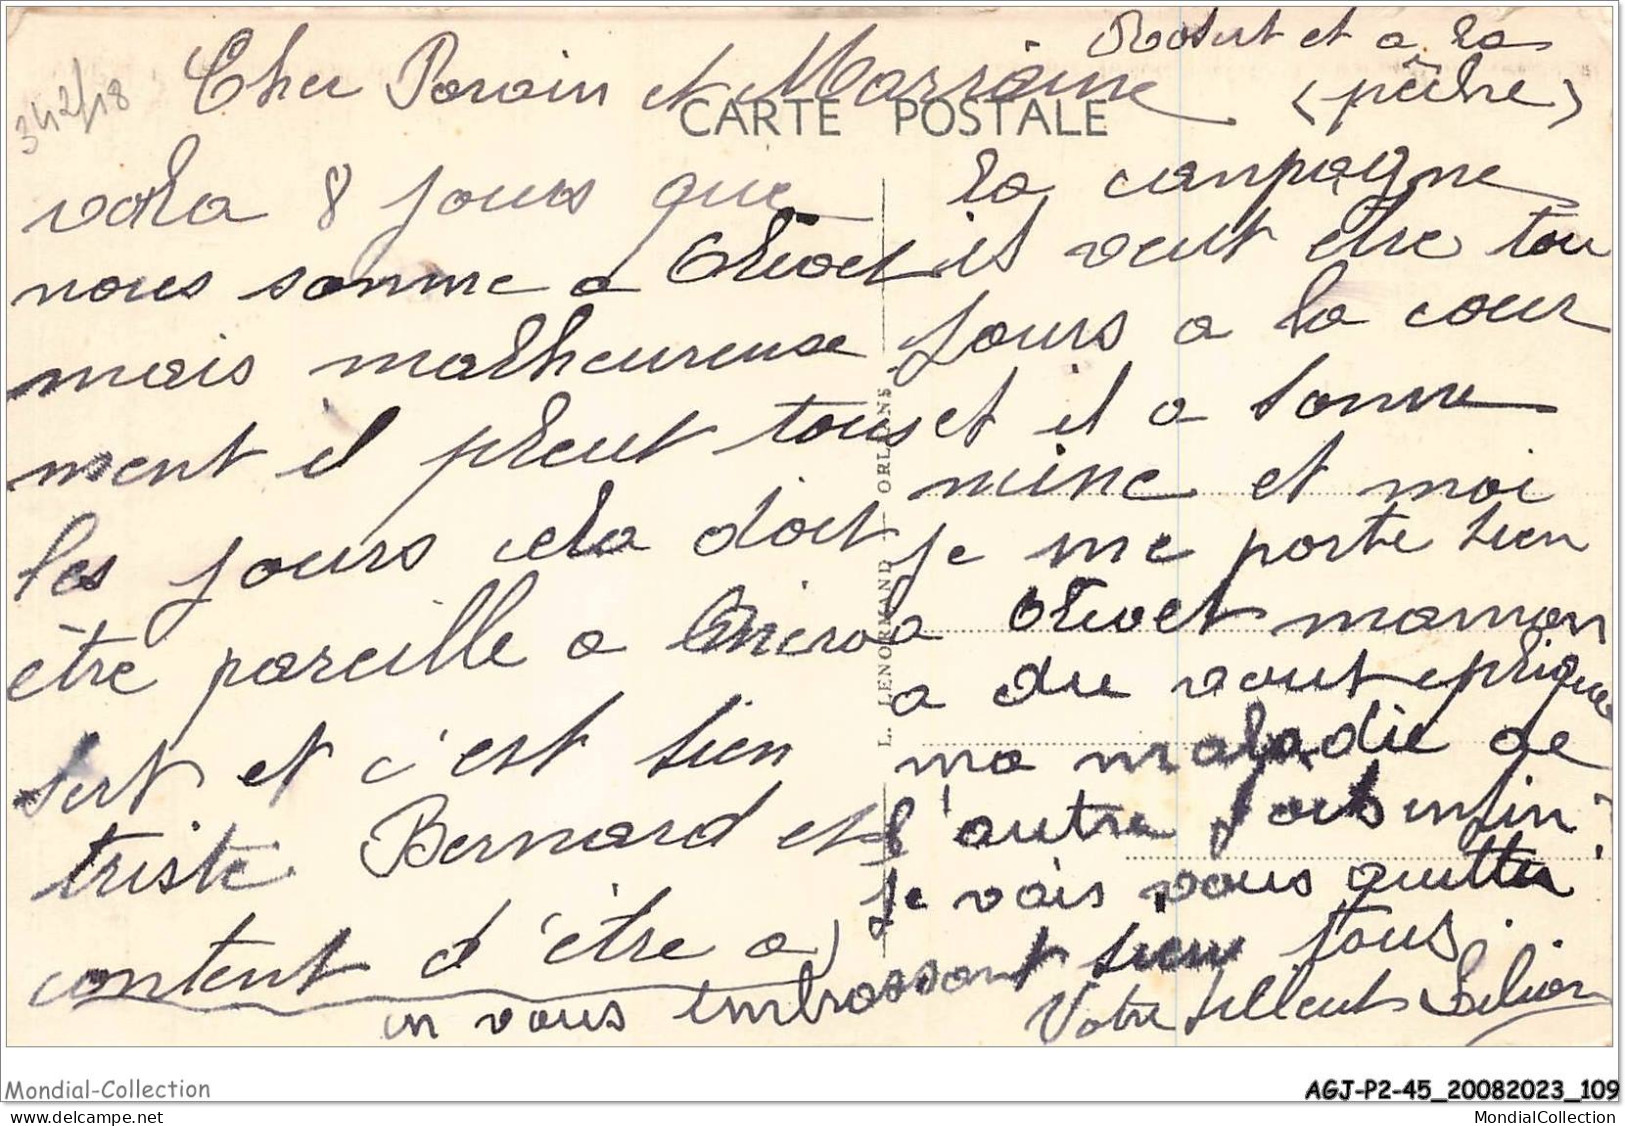 342/18
Cher Parain et Marraine
CARTE POSTALE
voila 8 jours que
nous somme a Olivet
mais malheureuse
ment il pleut tous
les jours cela doit
être pareille a
bert et c'est bien
triste Bernard et
content d'être a
en vous embrassant bien fous
Robert et a la
(pêche)
la campagne
il veut être tou
jours a la cour
et il a bonne
mine et moi
je me porte bien
a Olivet maman
a du vous
ma maladie de
l'autre fois enfin
je vais vous quitter
Votre filleule Lilian
L. LENORMAND - ORLEANS
Mondial-Collection
AGJ-P2-45_20082023_109
https://www.delcampe.net/fr/collections/store/mondialcollection
MondialCollection